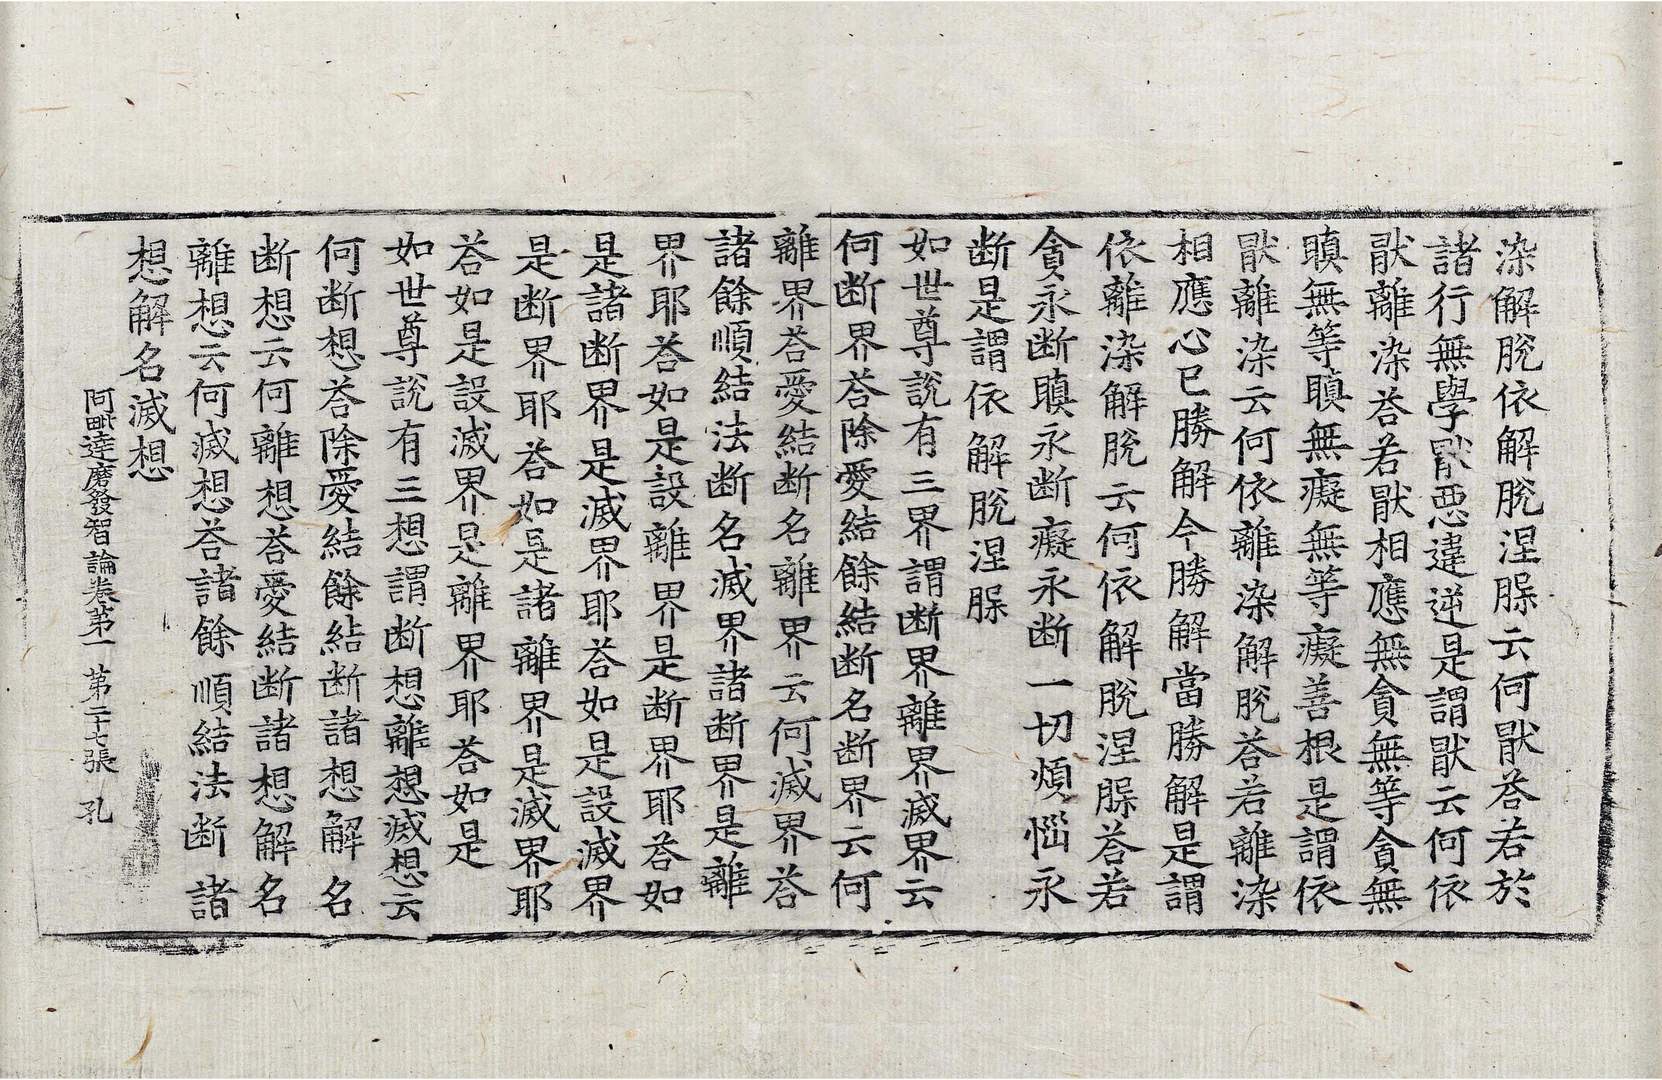 染解脫依解脫涅槃云何猒荅若於
諸行無學猒惡違逆是謂猒云何依
猒離染荅若猒相應無貪無等貪無
瞋無等瞋無癡無等癡善根是謂依
猒離染云何依離染解脫荅若離染
相應心已勝解今勝解當勝解是謂
依離染解脫云何依解脫涅槃荅若
貪永断瞋永断癡永断一切煩惱永
断是謂依解脫涅槃
如世尊說有三界謂断界離界滅界云
何断界荅除愛結餘結断名断界云何
離界荅愛結断名離界云何滅界荅
諸餘順結法断名滅界諸断界是離
界耶荅如是設離界是断界耶荅如
是諸断界是滅界耶荅如是設滅界
是断界耶荅如是諸離界是滅界耶
荅如是設滅界是離界耶荅如是
如世尊說有三想謂断想離想滅想云
何断想荅除愛結餘結断諸想解名
断想云何離想荅愛結断諸想解名
離想云何滅想荅諸餘順結法断諸
想解名滅想
阿毗達磨發智論卷第一 第二十七張 孔